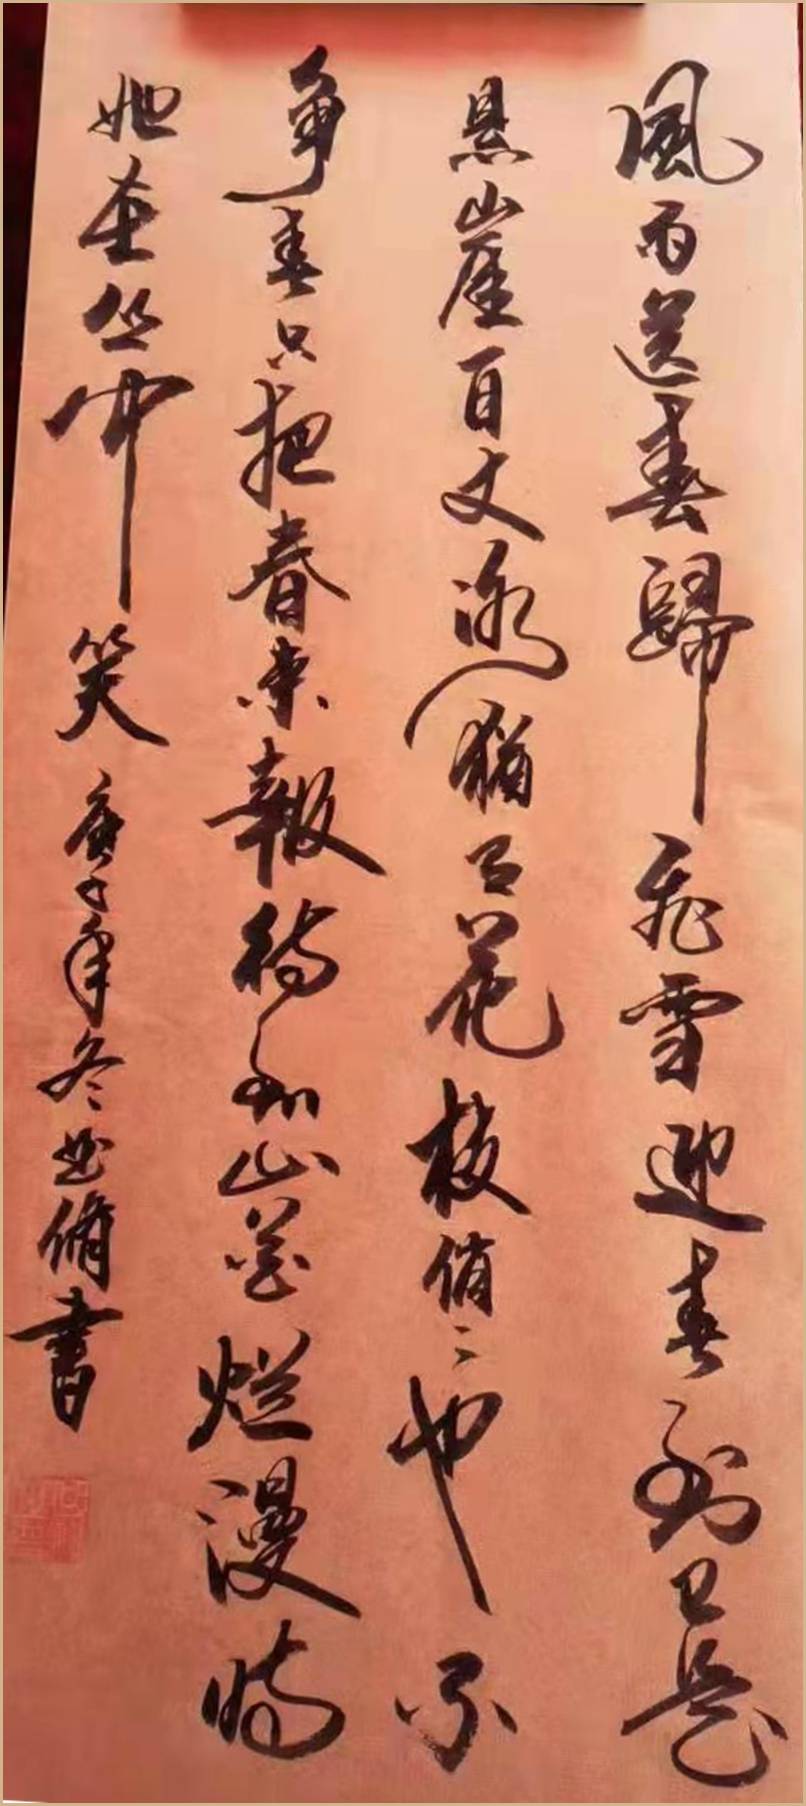 風雨送春歸飛雪迎春到已是
悬崖百丈冰猶有花枝俏〻也不
争春只把春来報待到山花烂漫時
她在丛中笑 庚子年冬 脩書